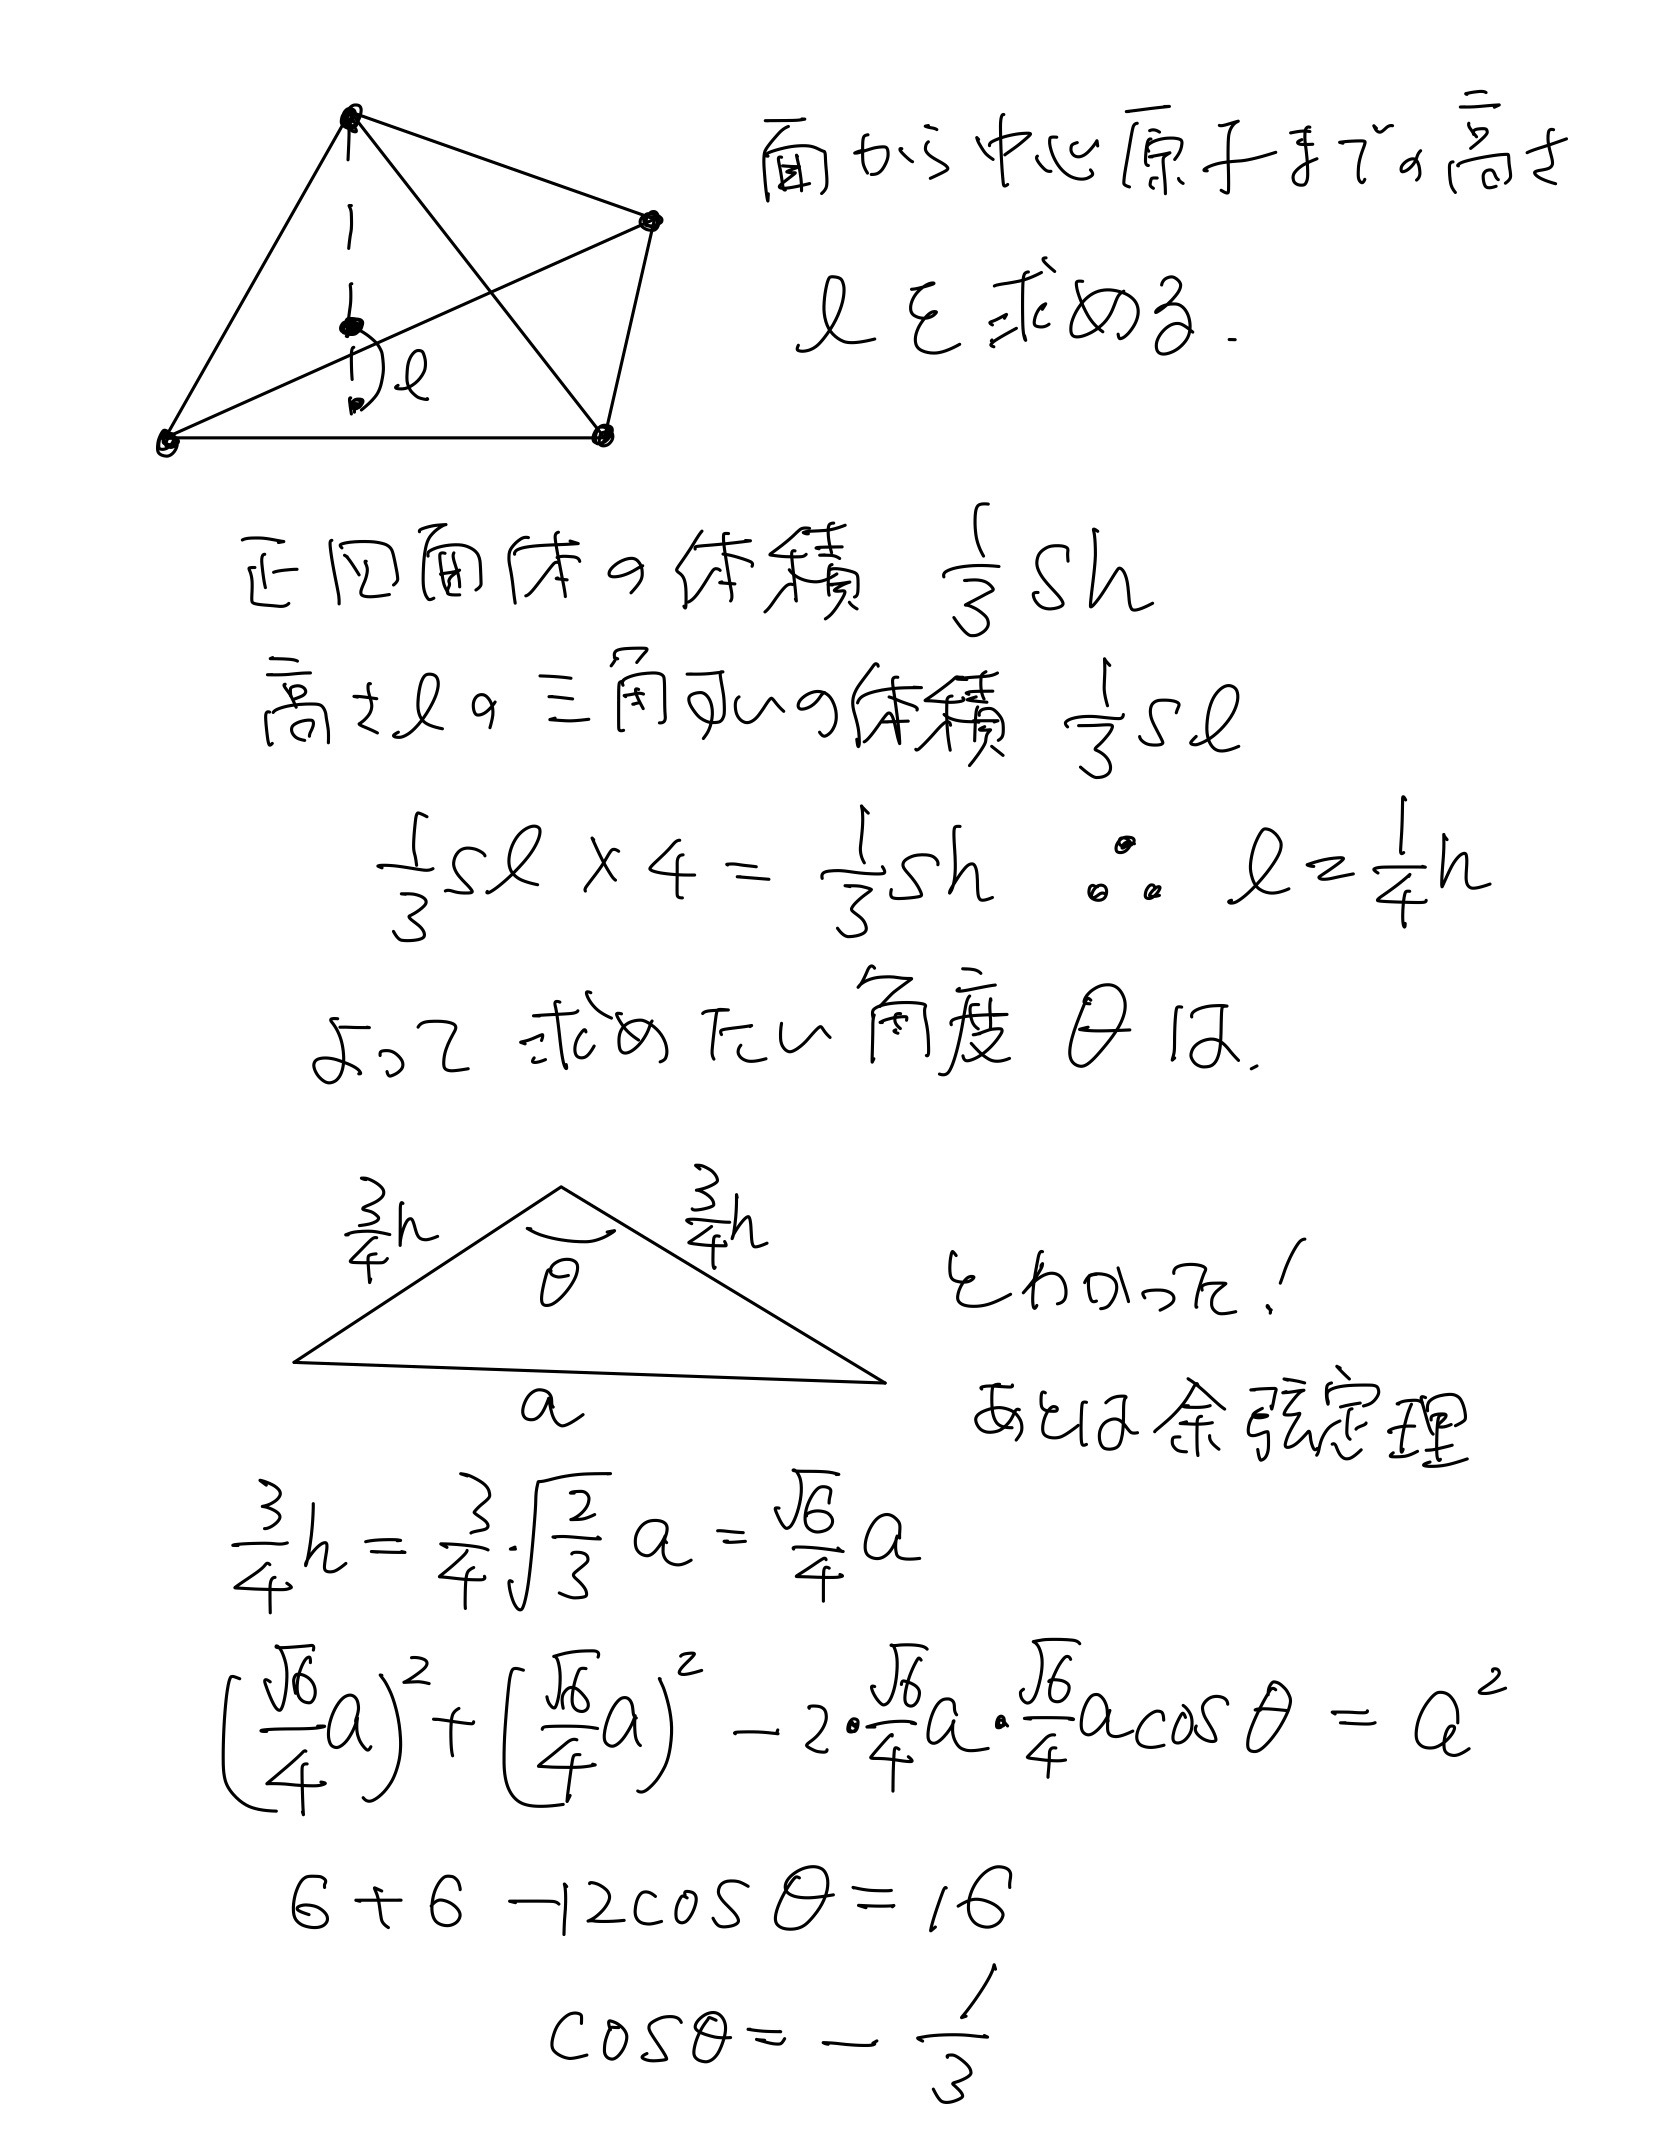 面から中心原子までの高さ
lを求める.
l
正四面体の体積 1/3 Sh
高さlの三角すいの体積 1/3 Sl
1/3 Sl × 4 = 1/3 Sh ∴ l = 1/4 h
よって求めたい角度 θ は.
3/4 h 3/4 h
θ
a
とわかった!
あとは余弦定理
3/4 h = 3/4・√(2/3) a = √6/4 a
(√6/4 a)² + (√6/4 a)² - 2・√6/4 a・√6/4 a cosθ = a²
6 + 6 - 12cosθ = 16
cosθ = - 1/3